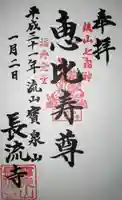 奉拝
流山七福神
恵比寿尊
平成三十一年流山寳泉山
一月二日
長流寺